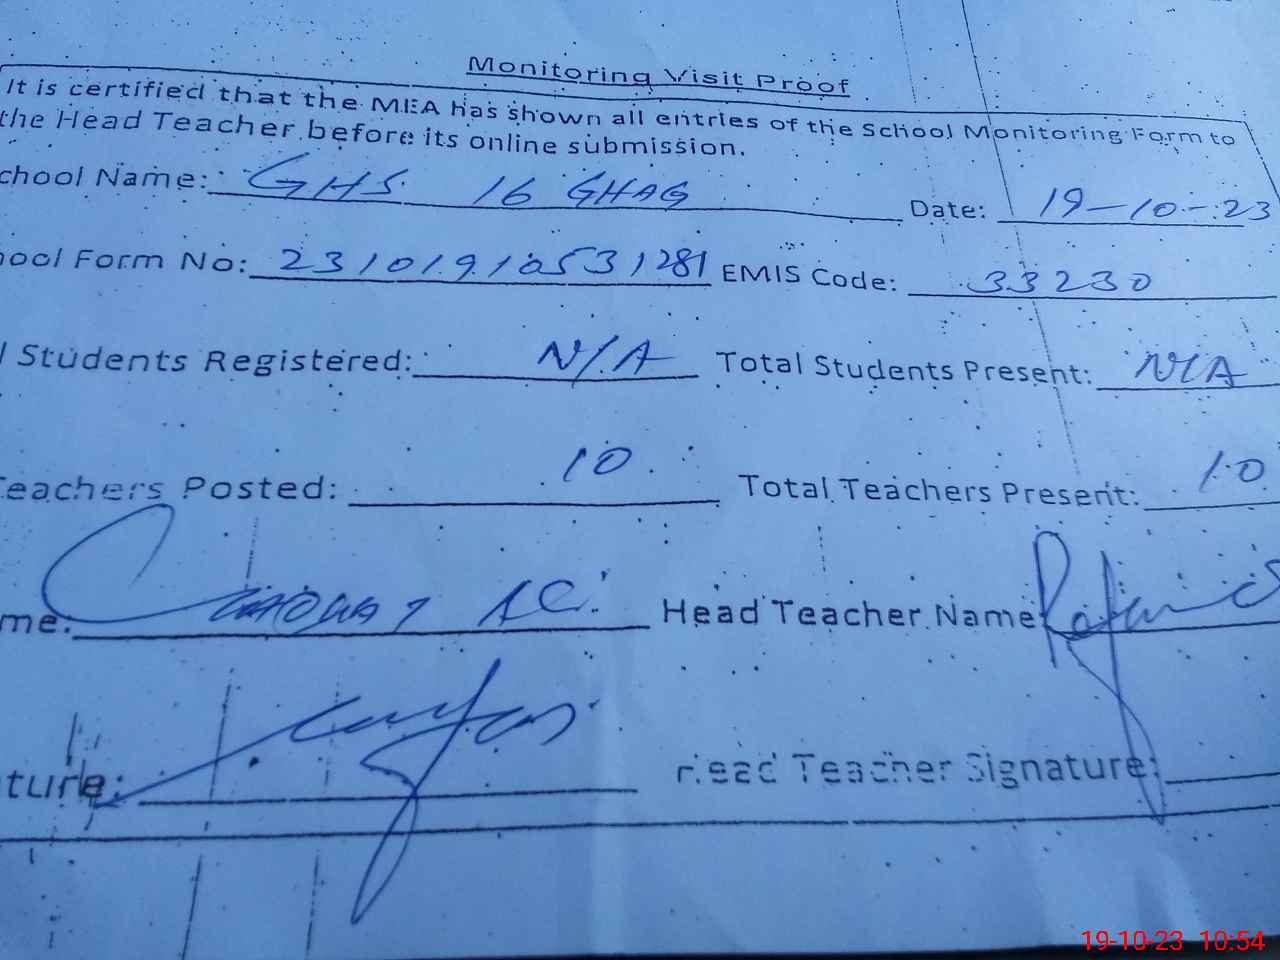 Monitoring Visit Proof
It is certified that the MEA has shown all entries of the School Monitoring Form to
the Head Teacher before its online submission.
chool Name: GHS 16 GHAG Date: 19-10-23
ool Form No: 23101910531281 EMIS Code: 33230
l Students Registered: N/A Total Students Present: N/A
Teachers Posted: 10 Total Teachers Present: 10
me: Head Teacher Name
ture: Head Teacher Signature:
19-10-23 10:54